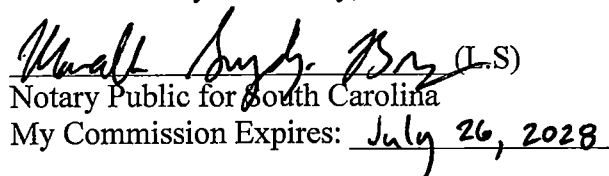 (L.S)
Notary Public for South Carolina
My Commission Expires: July 26, 2028